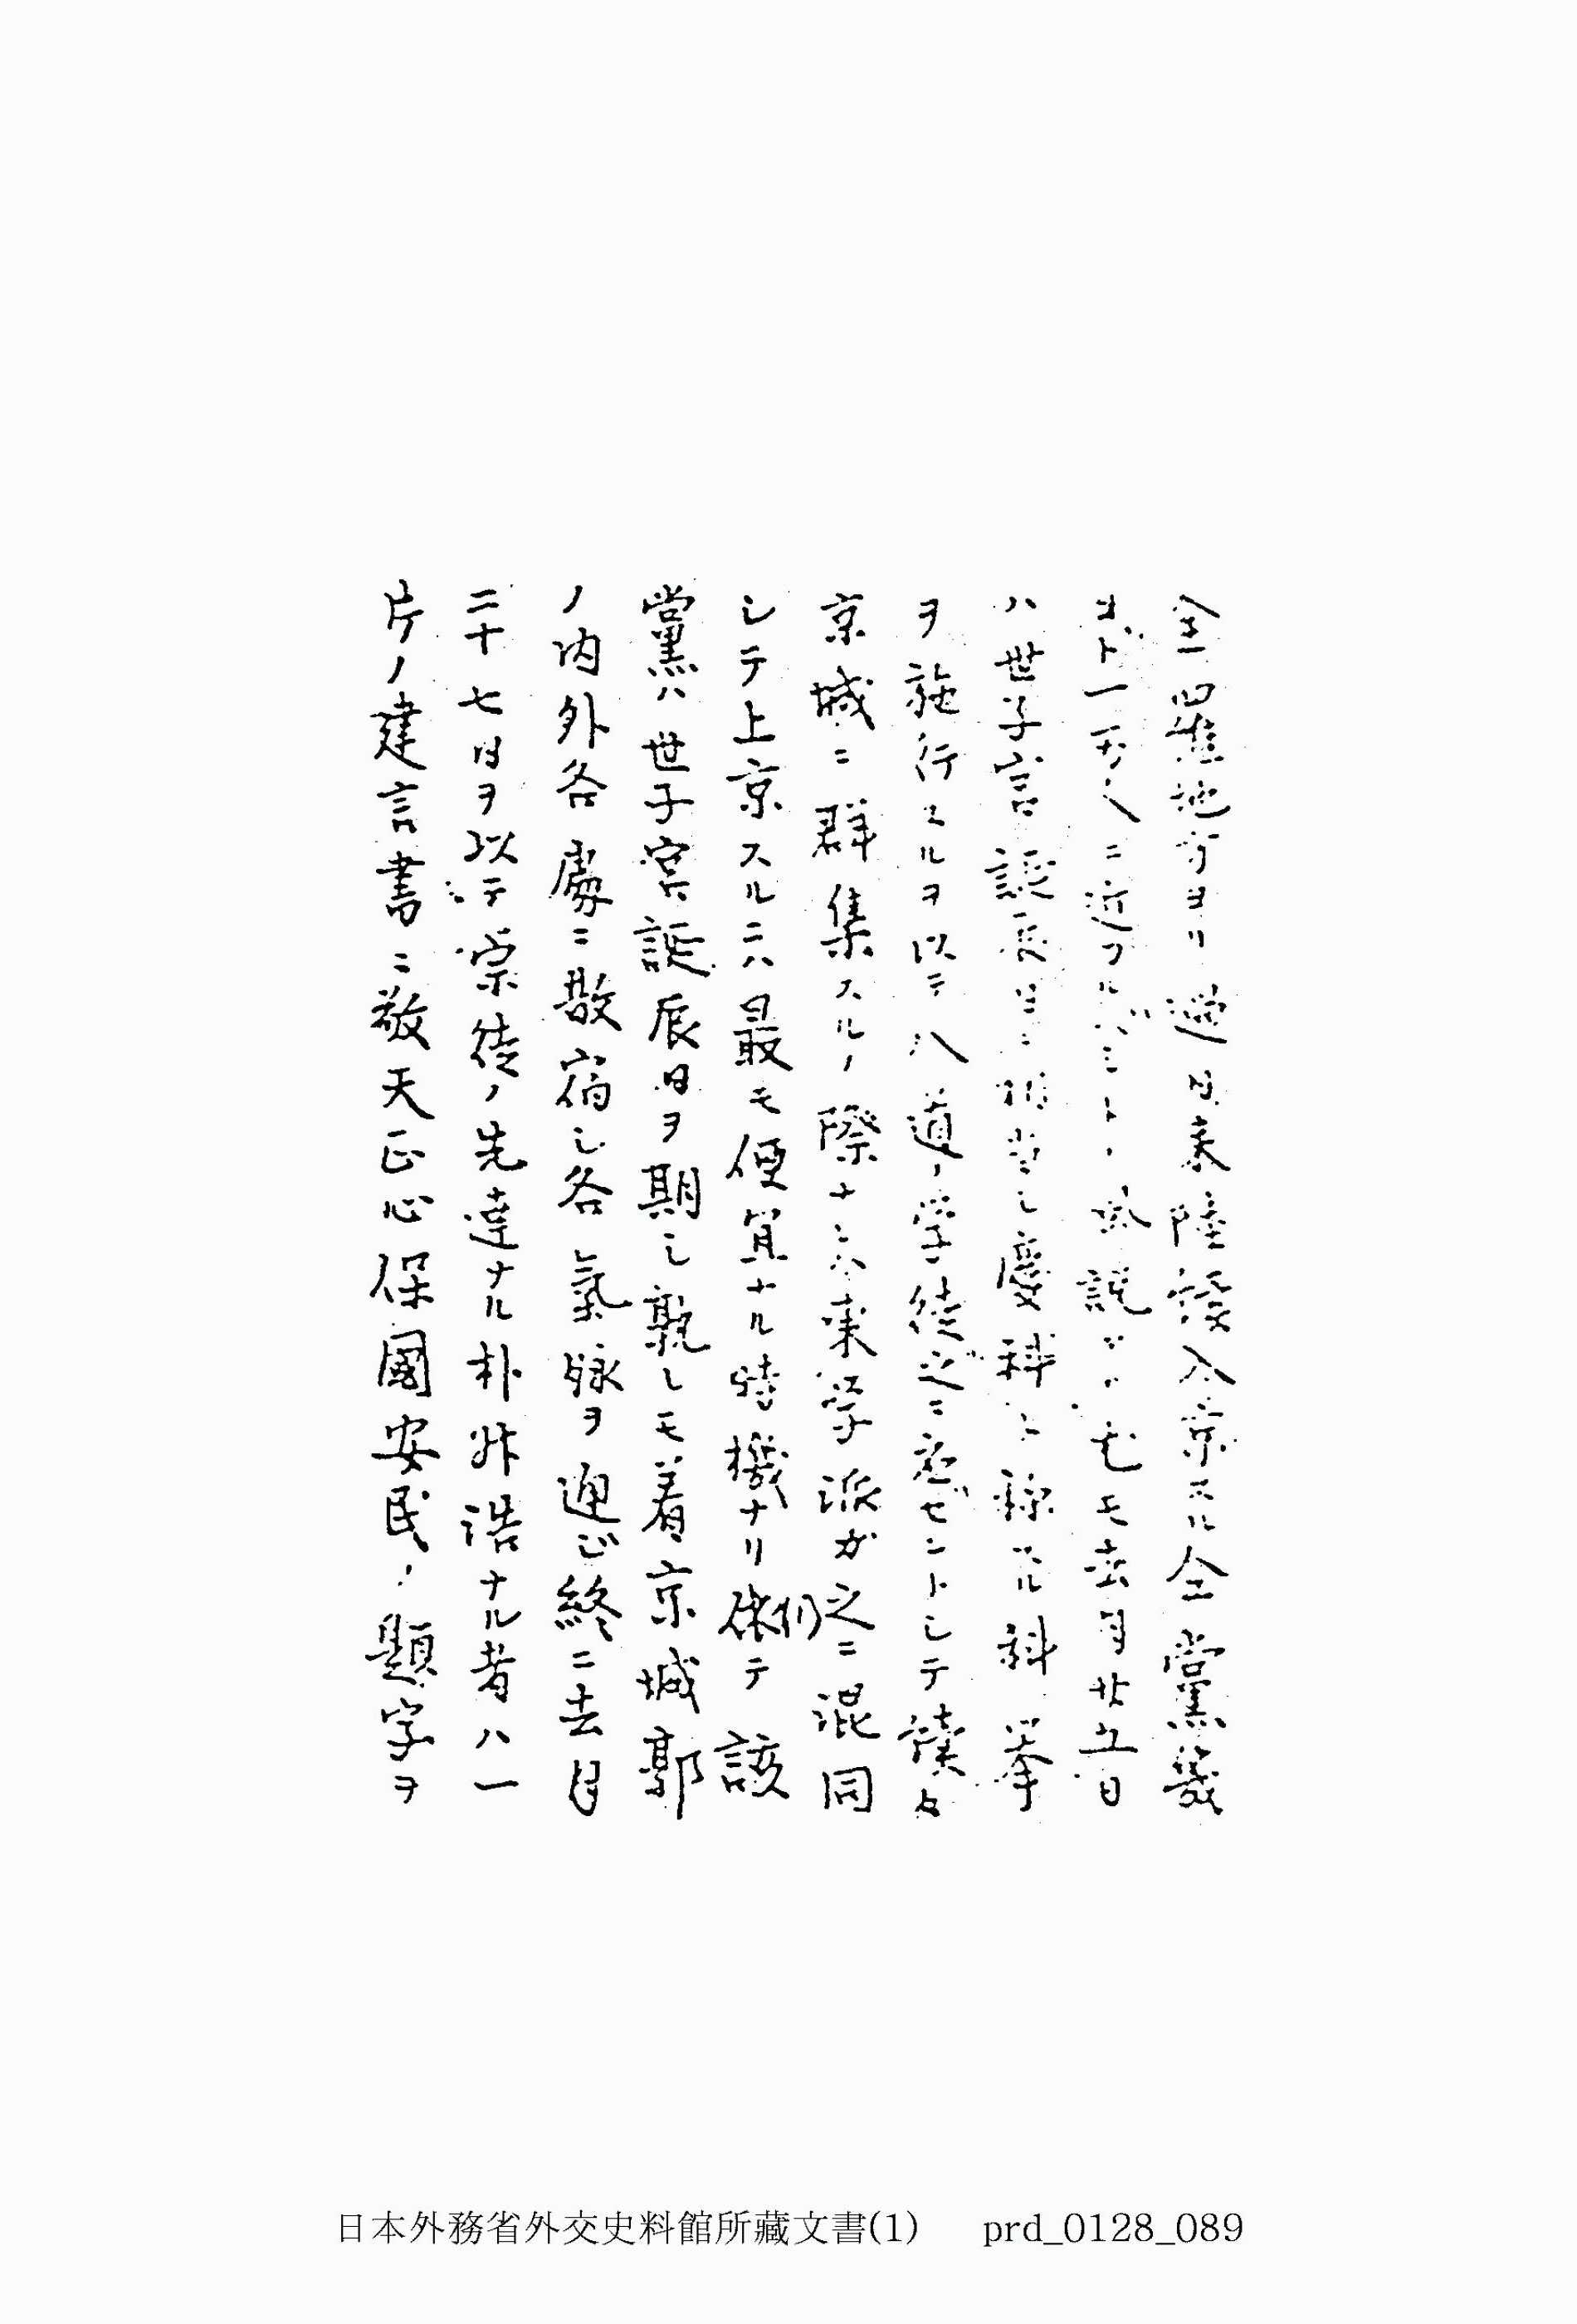 全羅地方ヨリ過日来陸続入京スル全黨幾
ホト一万人ニ近フルベシトノ風説アリ尤モ去月廿五日
ハ世子宮誕辰日ニ相当シ慶科ト称スル科挙
ヲ施行スルヲ以テ八道ノ学徒之ニ応ゼントシテ續々
京城ニ群集スルノ際ナレハ東学派ガ之ニ混同
シテ上京スルニハ最モ便宜ナル時機ナリ依テ該
黨ハ世子宮誕辰日ヲ期シ孰レモ着京城郭
ノ内外各處ニ散宿シ各氣脉ヲ通ジ終ニ去月
二十七日ヲ以テ宗徒ノ先達ナル朴昇浩ナル者ハ一
片ノ建言書ニ敬天正心保國安民ノ題字ヲ
日本外務省外交史料館所藏文書(1) prd_0128_089